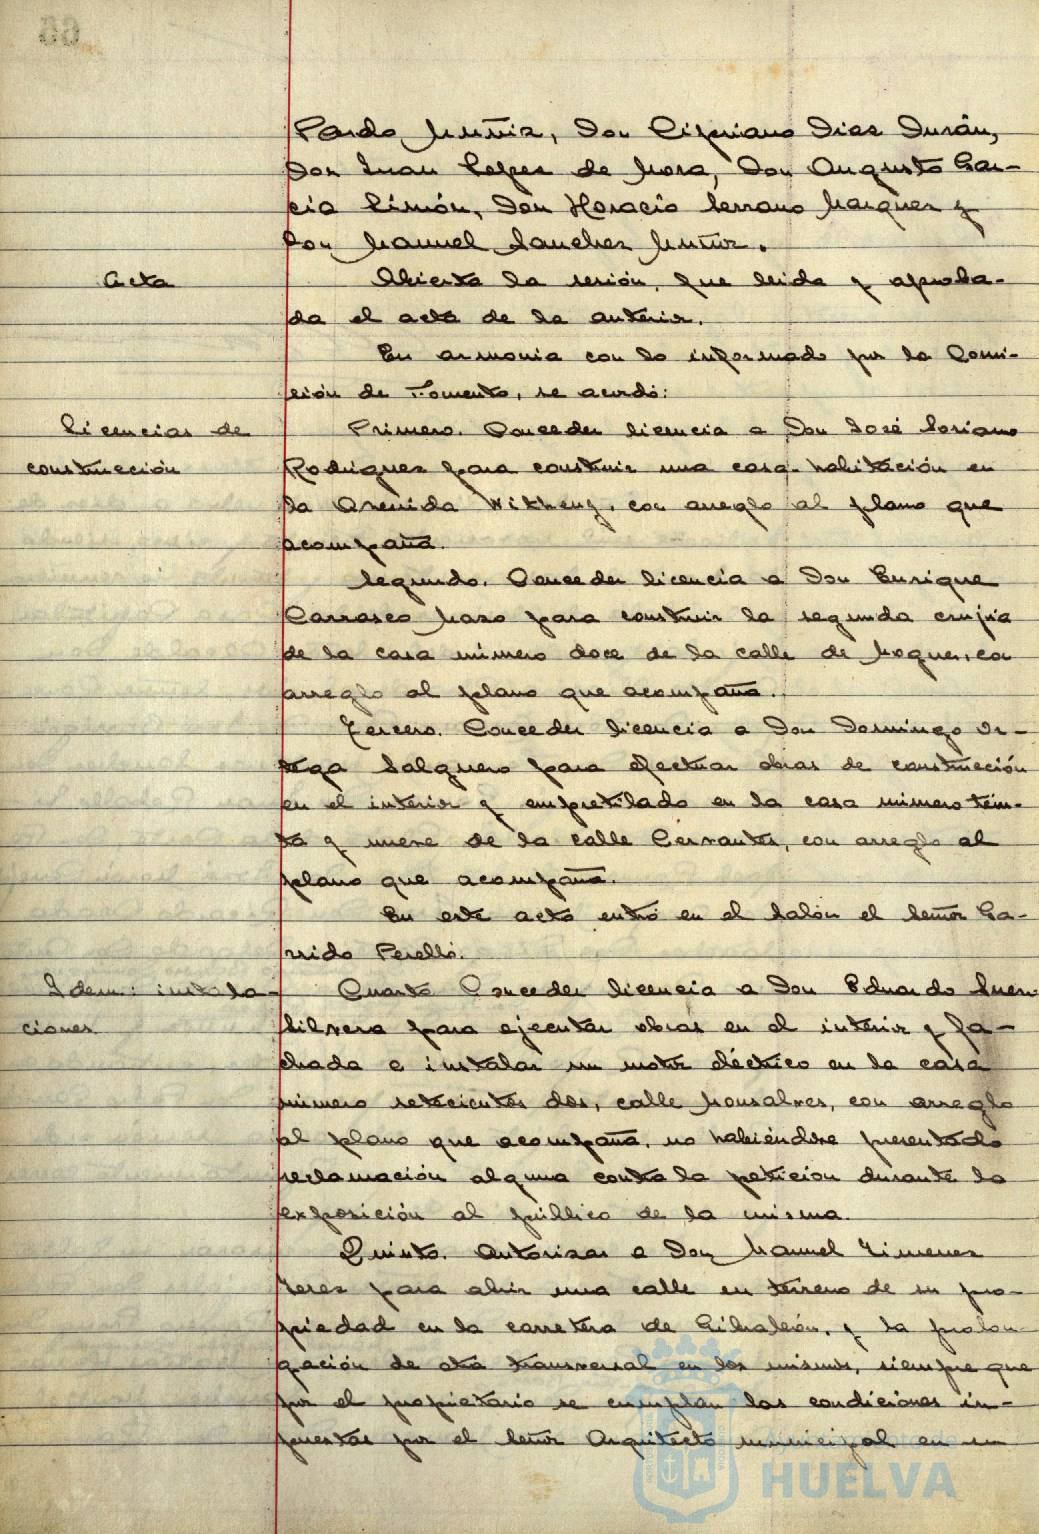 Pardo Muñiz, Don Cipriano Diaz Durán,
Don Juan Lopez de Mora, Don Augusto Gar-
cia Limón, Don Horacio Serrano Marquez y
Don Manuel Sanchez Muñiz.
Acta
Abierta la sesión, fue leida y aproba-
da el acta de la anterior.
En armonia con lo informado por la Comi-
sión de Fomento, se acordó:
Licencias de
construcción
Primero. Conceder licencia a Don José Soriano
Rodriguez para construir una casa-habitación en
la Avenida, con arreglo al plano que
acompaña.
Segundo. Conceder licencia a Don Enrique
Carrasco Mazo para construir la segunda crujia
de la casa número doce de la calle de Moguer, con
arreglo al plano que acompaña.
Tercero. Conceder licencia a Don Domingo Or-
tega Salguero para efectuar obras de construcción
en el interior y empretilado en la casa número trein-
ta y nueve de la calle Cervantes, con arreglo al
plano que acompaña.
En este acto entró en el Salón el Señor Ga-
rrido Perelló.
Idem: instala-
ciones
Cuarto Conceder licencia a Don Eduardo
Silvera para ejecutar obras en el interior y fa-
chada e instalar un motor eléctrico en la casa
número setecientos dos, calle Monsalves, con arreglo
al plano que acompaña, no habiéndose presentado
reclamación alguna contra la petición durante la
exposición al público de la misma.
Quinto. Autorizar a Don Manuel Jimenez
Jerez para abrir una calle en terreno de su pro-
piedad en la carretera de Gibraleón, y la prolon-
gación de otra transversal en los mismos, siempre que
por el propietario se cumplan las condiciones im-
puestas por el Señor Arquitecto municipal en su
HUELVA